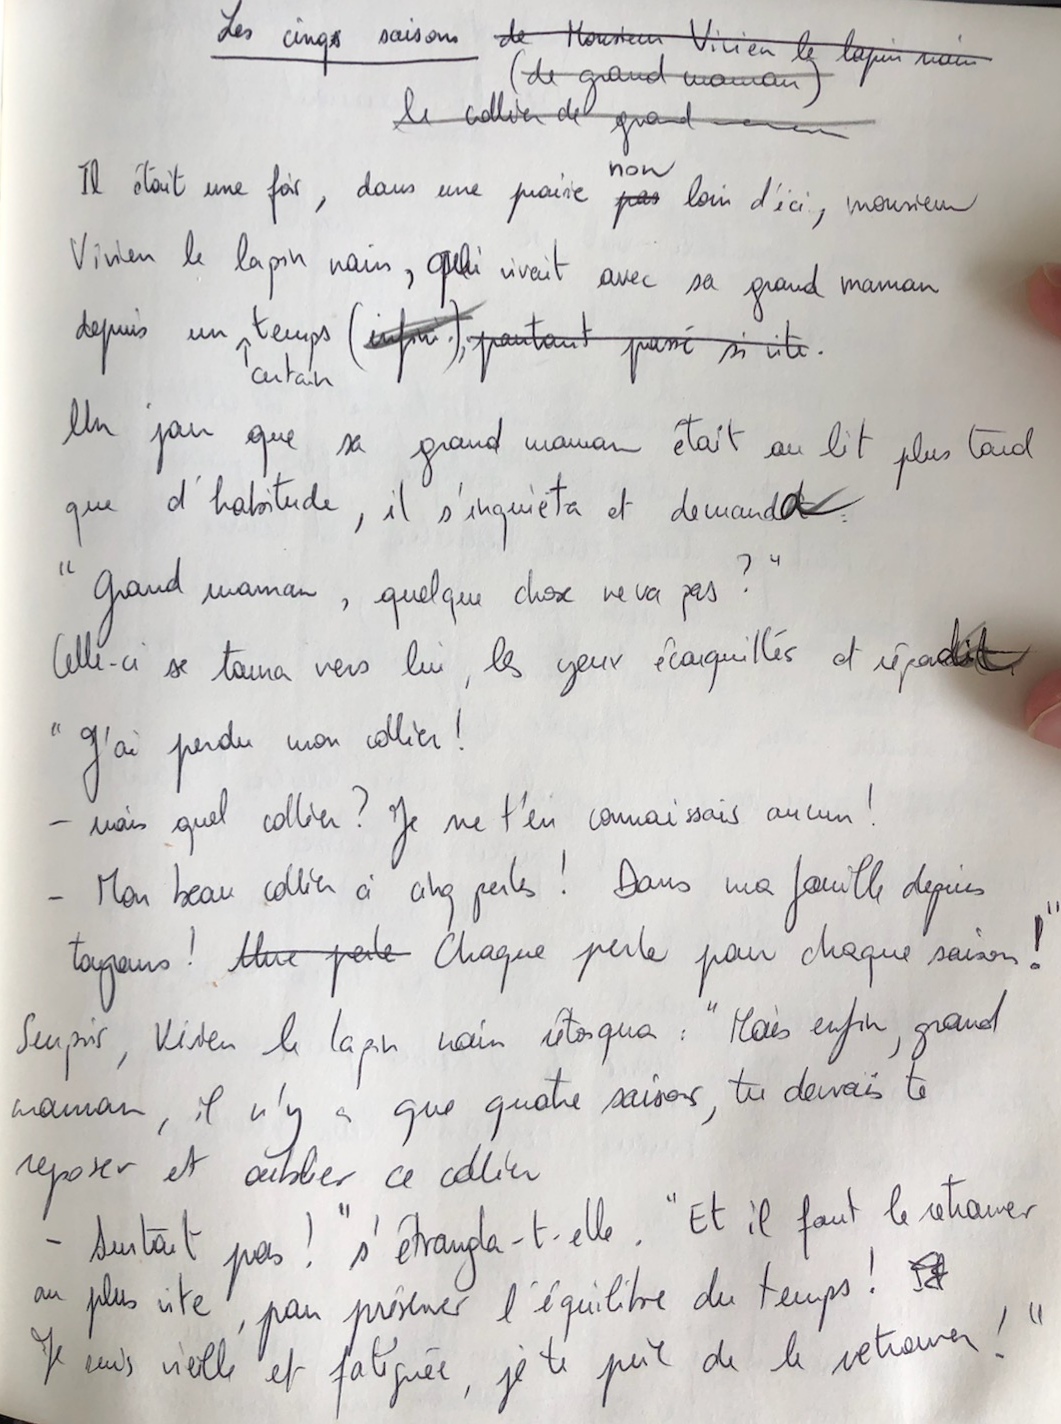 Les cinqs saisons de Monsieur Vivien le lapin nain
(de grand maman)
le collier de grand maman
non
Il était une fois, dans une prairie pas loin d'ici, monsieur
Vivien le lapin nain, qui vivait avec sa grand maman
depuis un temps (infini.), pourtant passé si vite.
certain
Un jour que sa grand maman était au lit plus tard
que d'habitude, il s'inquiéta et demanda
"Grand maman, quelque chose ne va pas ?"
Celle-ci se tourna vers lui, les yeux écarquillés et répondit
"J'ai perdu mon collier !
- mais quel collier ? Je ne t'en connaissais aucun !
- Mon beau collier à cinq perles ! Dans ma famille depuis
toujours ! Une perle Chaque perle pour chaque saison !"
Surpris, Vivien le lapin nain rétorqua : "Mais enfin, grand
maman, il n'y a que quatre saisons, tu devrais te
reposer et oublier ce collier
- Surtout pas !" s'étrangla-t-elle. "Et il faut le retrouver
au plus vite, pour préserver l'équilibre du temps !
Je suis vieille et fatiguée, je te prie de le retrouver !"